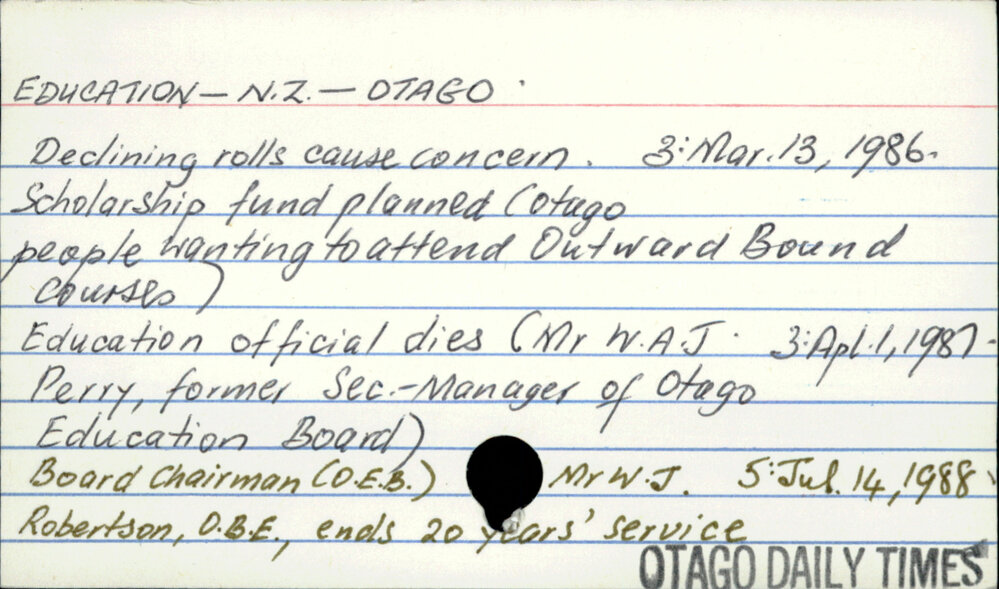 EDUCATION — N.Z. — OTAGO
Declining rolls cause concern. 3: Mar. 13, 1986.
Scholarship fund planned (Otago
people wanting to attend Outward Bound
Courses)
Education official dies (Mr W.A.J. 3: Apl. 1, 1987.
Perry, former Sec.-Manager of Otago
Education Board)
Board Chairman (O.E.B.) Mr W.J. 5: Jul. 14, 1988
Robertson, O.B.E., ends 20 years' service
OTAGO DAILY TIMES